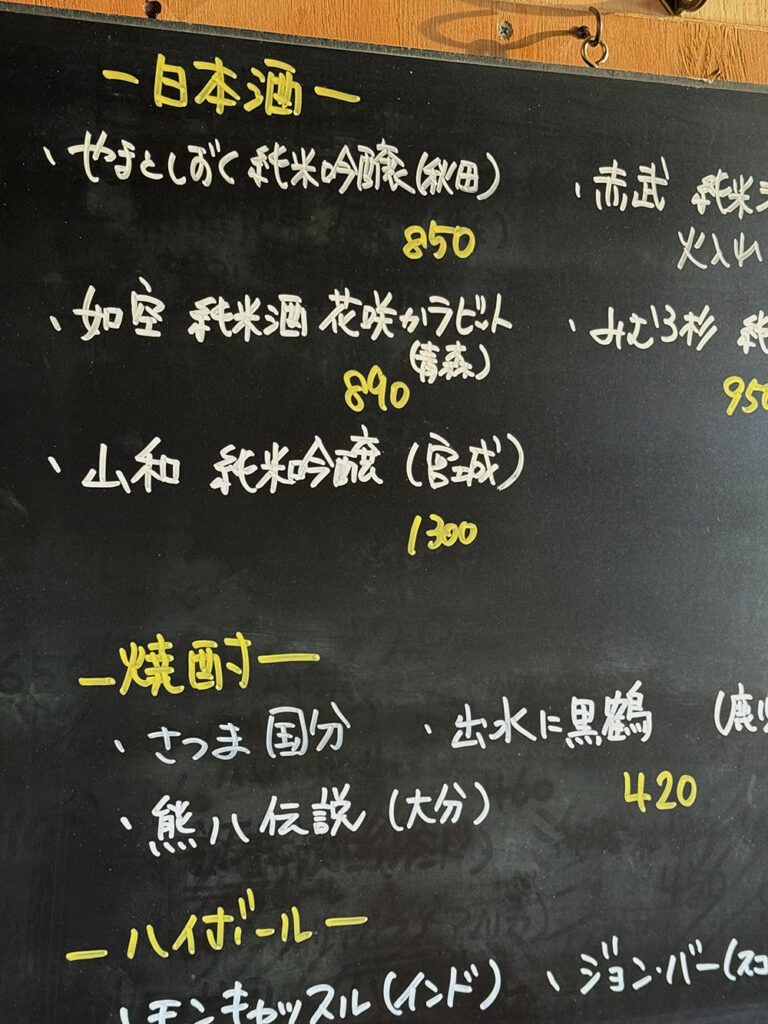 ー日本酒ー
、やまとしずく 純米吟醸(秋田)
850
・赤武 純米
火入れ
、如空 純米酒 花咲かラビット
(青森)
890
、みむろ杉 純
950
、山和 純米吟醸(宮城)
1300
ー焼酎ー
、さつま国分
・出水に黒鶴 (鹿児
420
・熊八伝説(大分)
ーハイボールー
、モンキキャッスル(インド)
、ジョン・バー(スコ